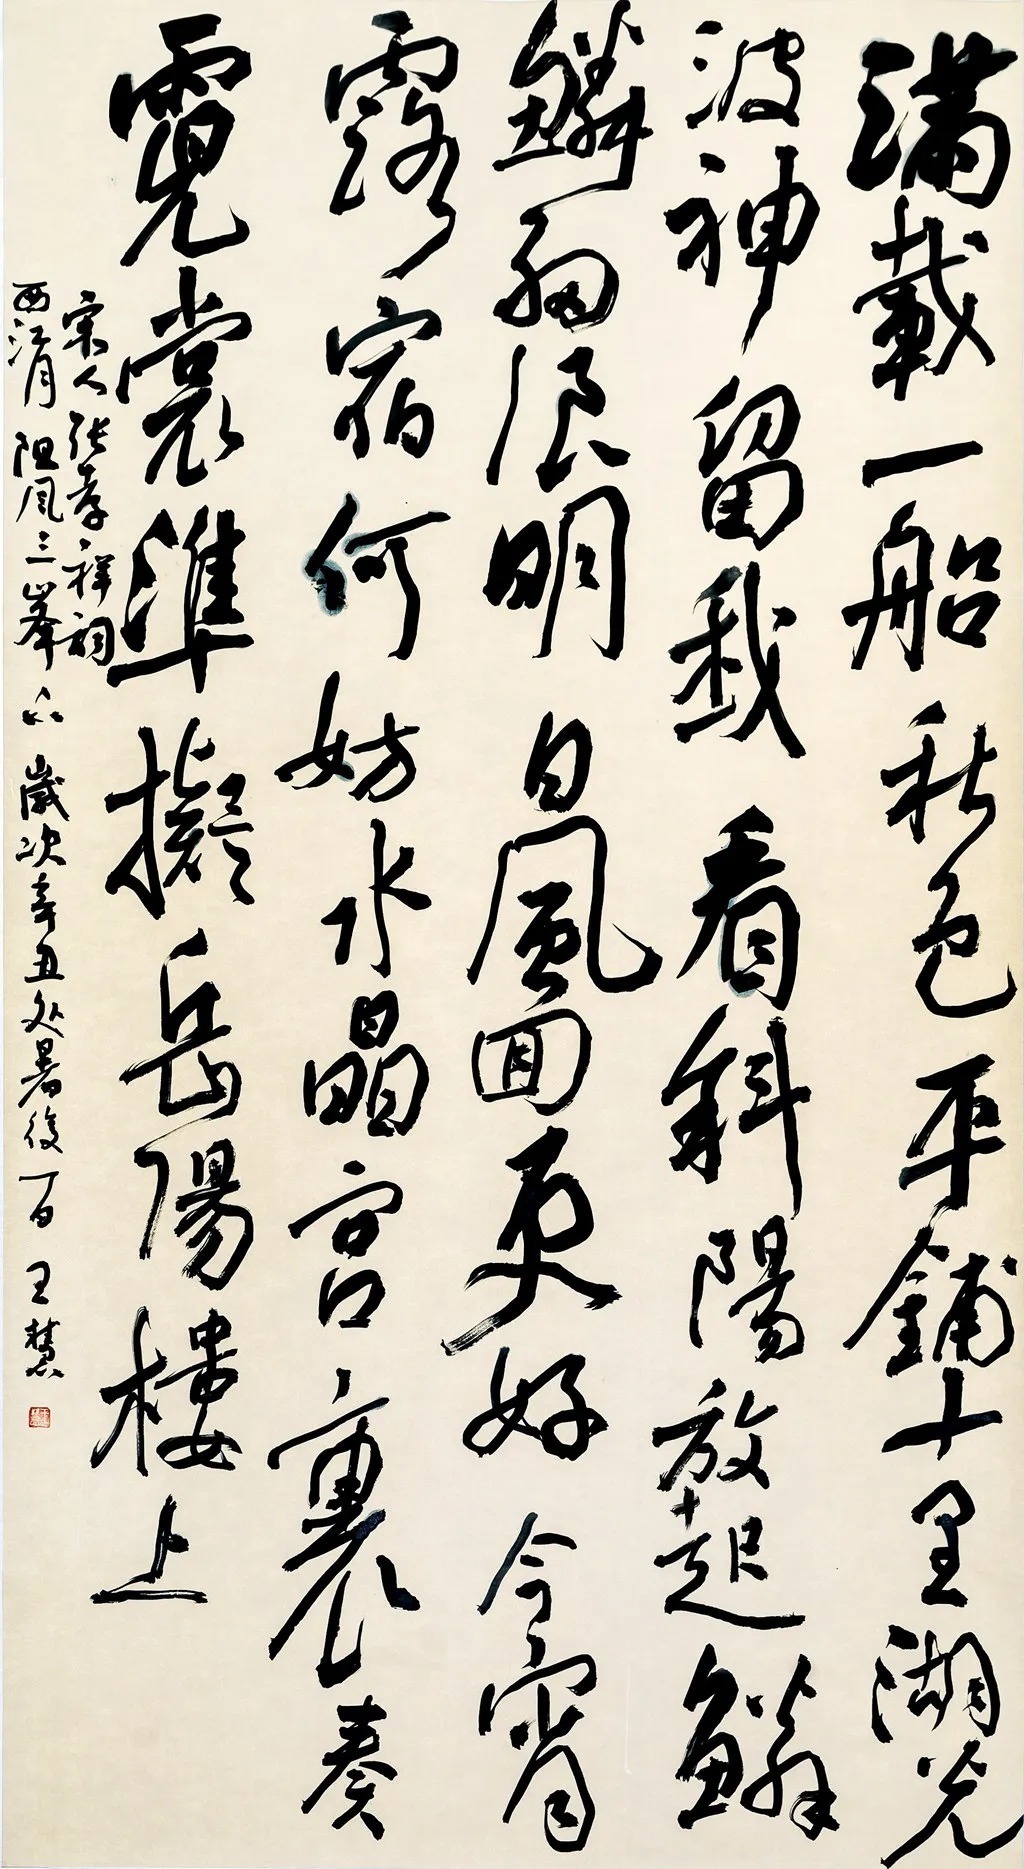 滿載一船秋色平鋪十里湖光
波神留我看斜陽放起鱗
鱗細浪明日風回更好今宵
露宿何妨水晶宮裏奏
霓裳準擬岳陽樓上
宋人張孝祥詞
西江月阻風三峯下歲次辛丑处暑後一日王慧